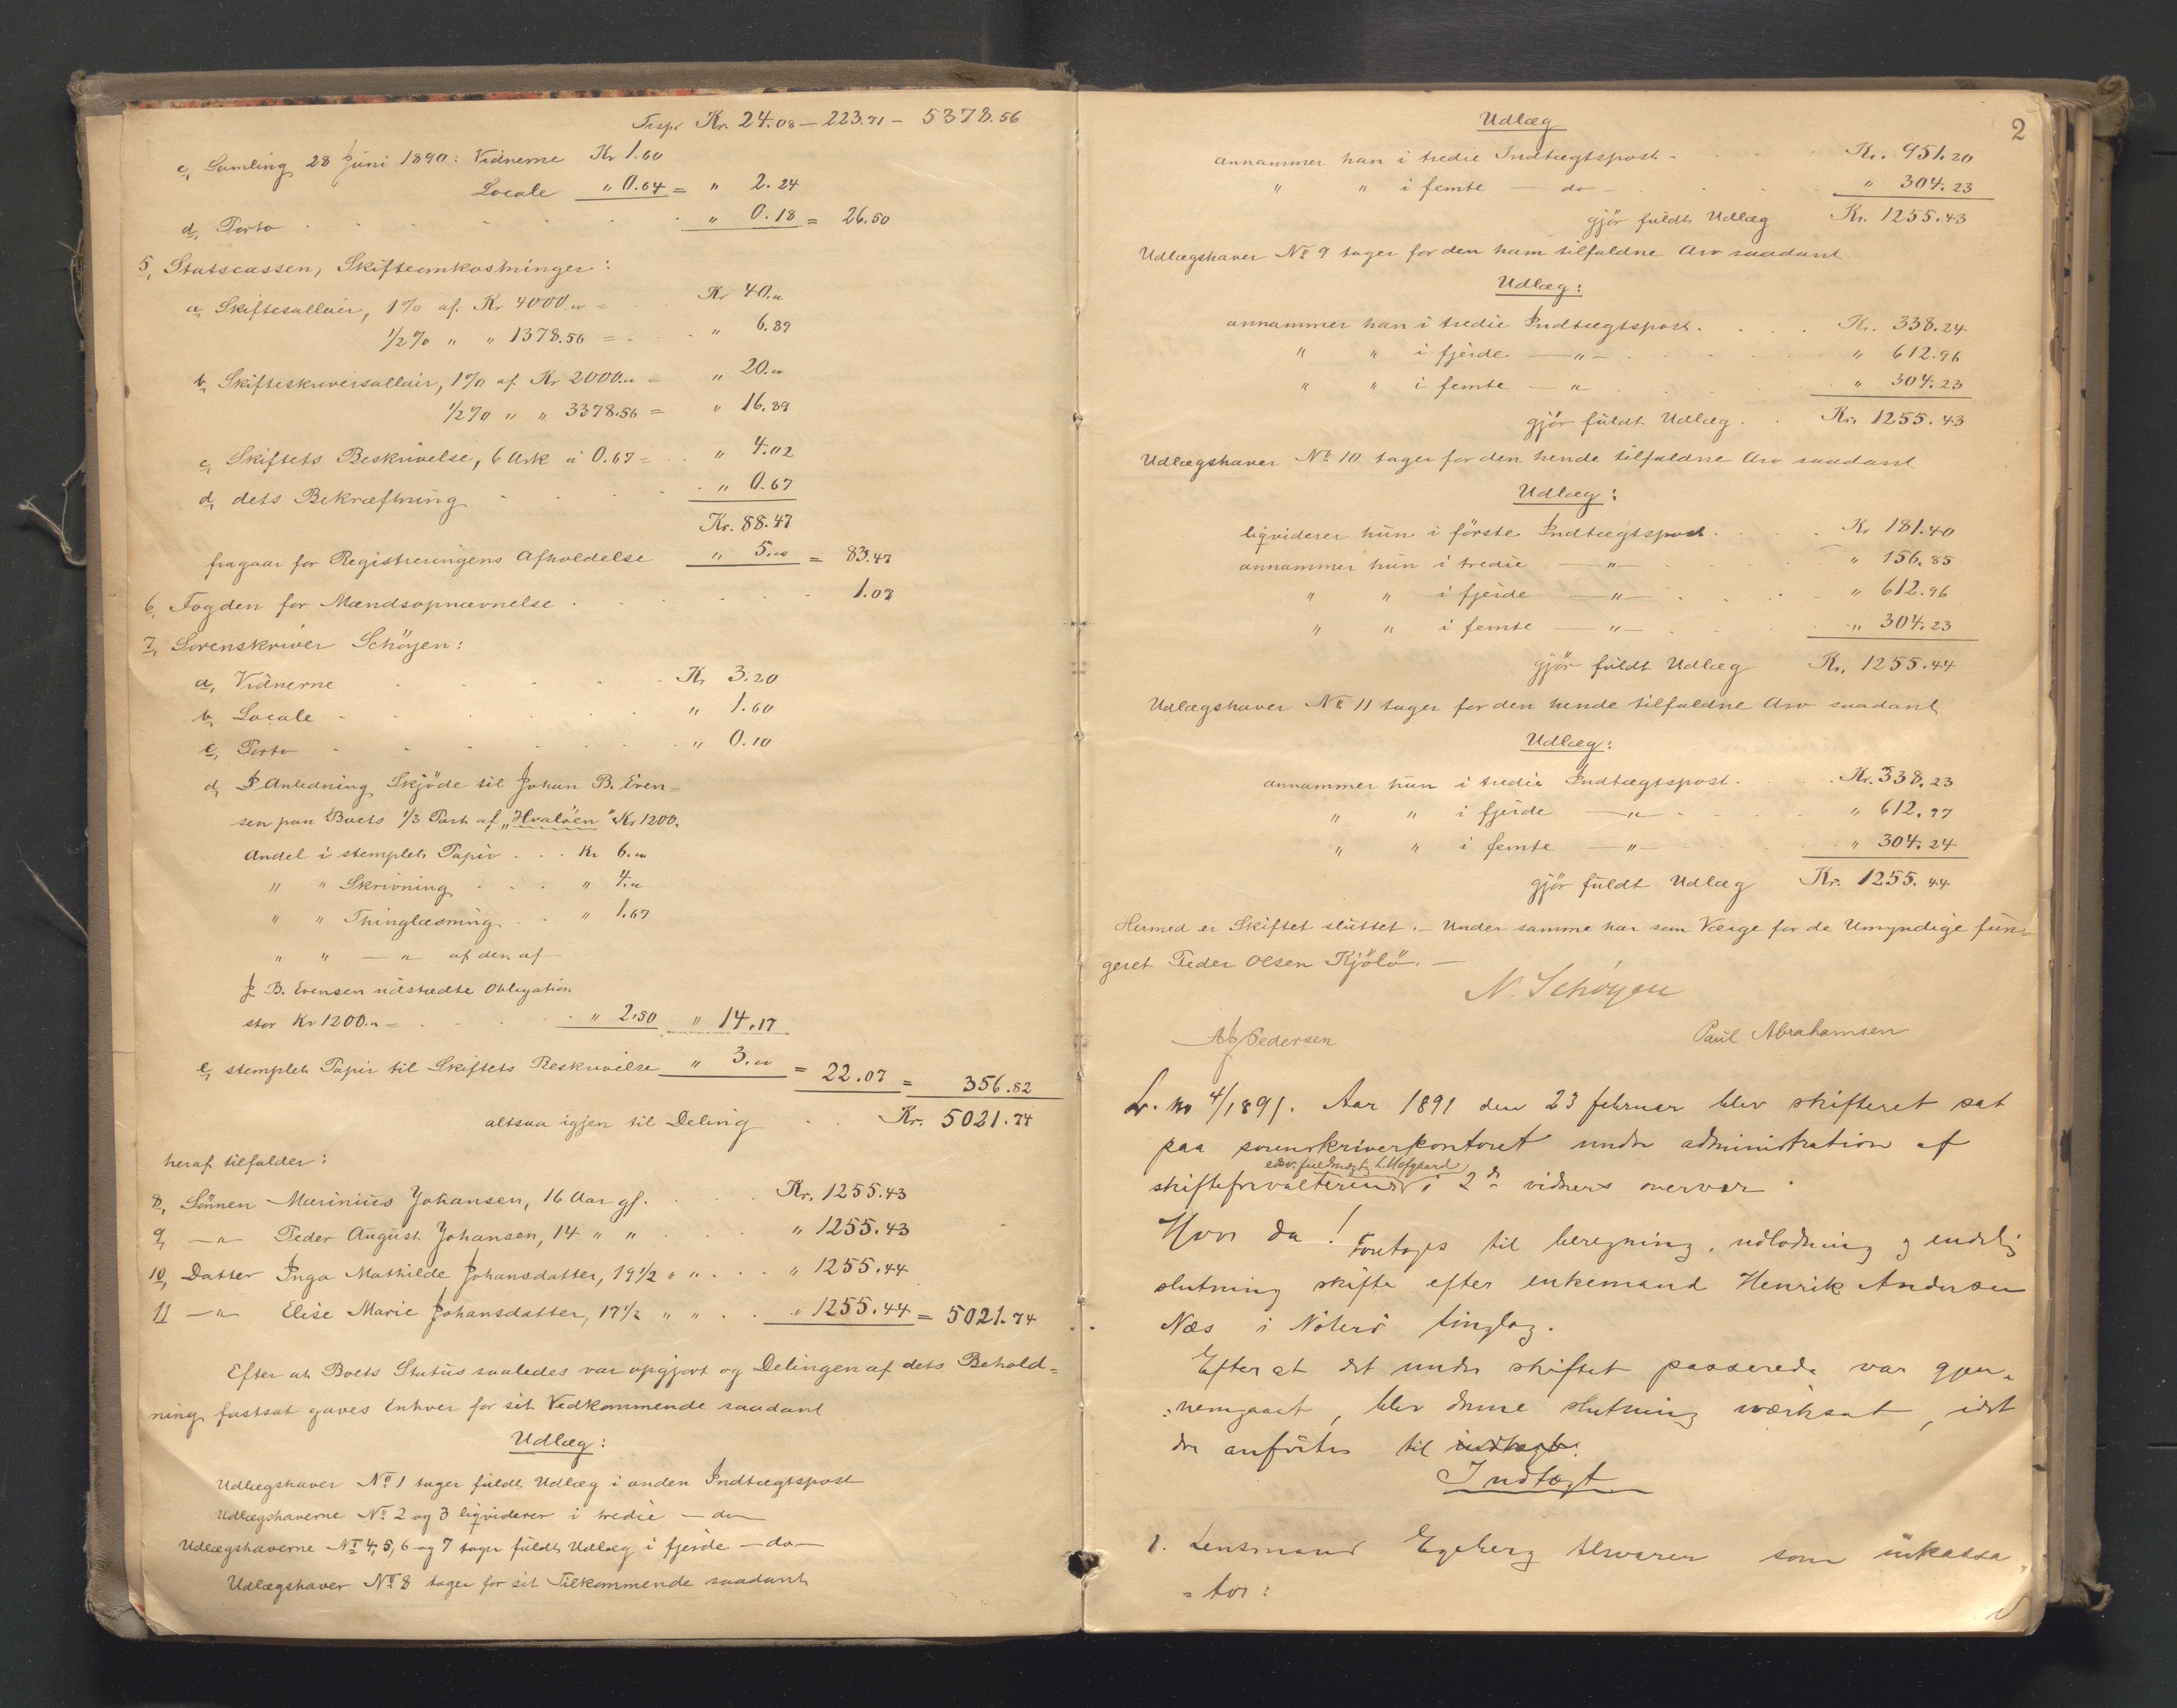 Trspt Kr. 24.08 — 223.71 — 5378.56
c, Samling 28 Juni 1890: Vidnerne Kr 1.60
Locale " 0.64 = " 2.24
d, Porto . . . . . " 0.18 = 26.50
5, Statscassen, Skifteomkostninger:
a, Skiftesallair, 1% af Kr 4000.00 = . . Kr 40.00
1/2 % " " 1378.56 = . . " 6.89
b, Skifteskriversallair, 1% af Kr 2000.00 = " 20.00
1/2 % " " 3378.56 = " 16.89
c, Skiftets Beskrivelse, 6 Ark à 0.67 = . " 4.02
d, dets Bekræftning . . . . " 0.67
Kr. 88.47
fragaar for Registreringens Afholdelse " 5.00 = 83.47
6, Fogden for Mændsopnævnelse . . . . . 1.07
7, Sorenskriver Schöyen:
a, Vidnerne . . . . . Kr 3.20
b, Locale . . . . . . " 1.60
c, Porto . . . . . . " 0.10
d, I Anledning Skjöde til Johan B. Even=
sen paa Boets 1/3 Part af „Hvalöen" Kr 1200.
Andel i stemplet Papir . . . Kr 6.00
" " Skrivning . . . " 4.00
" " Thinglæsning . . " 1.67
" " — " — af den af
J. B. Evensen udstædte Obligation
stor Kr 1200.00 = . . . . " 2.50 " 14.17
e, stemplet Papir til Skiftets Beskrivelse " 3.00 = 22.07 = 356.82
altsaa igjen til Deling . . Kr. 5021.74
heraf tilfalder:
8, Sönnen Marinius Johansen, 16 Aar gl. . . . Kr. 1255.43
9, — " — Peder August Johansen, 14 " " . . . " 1255.43
10, Datter Inga Mathilde Johansdatter, 19 1/2 " " . . . " 1255.44
11 — " — Elise Marie Johansdatter, 17 1/2 " " . . " 1255.44 = 5021.74
Efter at Boets Status saaledes var opgjort og Delingen af dets Behold=
ning fastsat gaves Enhver for sit Vedkommende saadant
Udlæg:
Udlægshaver No 1 tager fuldt Udlæg i anden Indtægtspost
Udlægshaverne No 2 og 3 liqviderer i tredie — do —
Udlægshaverne No 4, 5, 6 og 7 tager fuldt Udlæg i fjerde — do —
Udlægshaver No 8 tager for sit Tilkommende saadant
2
Udlæg
annammer han i tredie Indtægtspost . . . . Kr. 951.20
" " i femte — do — . . . . " 304.23
gjör fuldt Udlæg Kr. 1255.43
Udlægshaver No 9 tager for den ham tilfaldne Arv saadant
Udlæg:
annammer han i tredie Indtægtspost . . . . Kr. 338.24
" " i fjerde — " — . . . . " 612.96
" " i femte — " — . . . . " 304.23
gjör fuldt Udlæg . . Kr. 1255.43
Udlægshaver No 10 tager for den hende tilfaldne Arv saadant
Udlæg:
liqviderer hun i förste Indtægtspost . . . Kr 181.40
annammer hun i tredie — " — . . . . " 156.85
" " i fjerde — " — . . . . " 612.96
" " i femte — " — . . . . " 304.23
gjör fuldt Udlæg Kr. 1255.44
Udlægshaver No 11 tager for den hende tilfaldne Arv saadant
Udlæg:
annammer hun i tredie Indtægtspost . . . Kr. 338.23
" " i fjerde — " — . . . . " 612.97
" " i femte — " — . . . . " 304.24
gjör fuldt Udlæg Kr. 1255.44
Hermed er Skiftet sluttet. — Under samme har som Værge for de Umyndige fun=
geret Peder Olsen Kjölö. —
N. Schöyen
Pedersen Paul Abrahamsen
L. No 4/1891. Aar 1891 den 23 februar blev skifteret sat
paa sorenskriverkontoret under administration af
edsv. fuldmægtig L. Hofgaard
skifteforvalteren i 2de vidners overvær.
Hvor da! Foretoges til beregning, udlodning og endelig
slutning skifte efter enkemand Henrik Andersen
Næs i Nöterö tinglag.
Efter at det under skiftet passerede var gjen=
:nemgaaet, blev denne slutning iværksat, idet
der anförtes til indtægt:
Indtægt
1. Lensmand Egeberg tilsvarer som inkassa=
=tor: